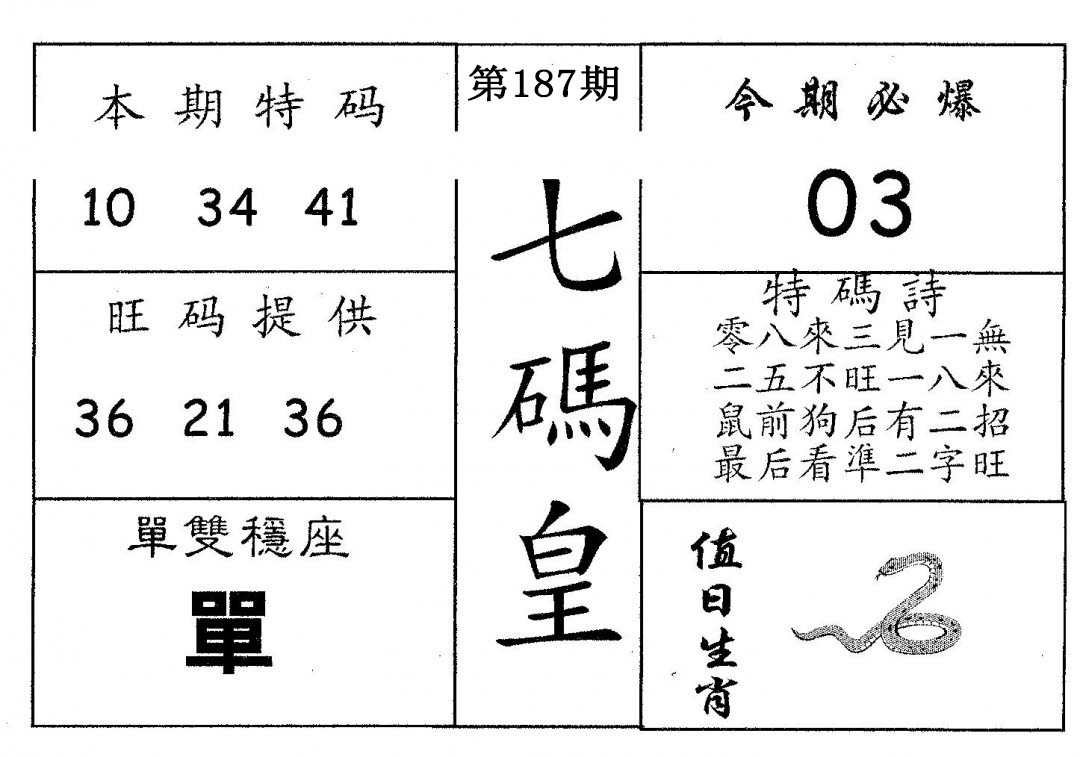 本期特码
10 34 41
旺码提供
36 21 36
單雙穩座
單
第187期
七碼皇
今期必爆
03
特碼詩
零八來三見一無
二五不旺一八來
鼠前狗后有二招
最后看準二字旺
值日生肖